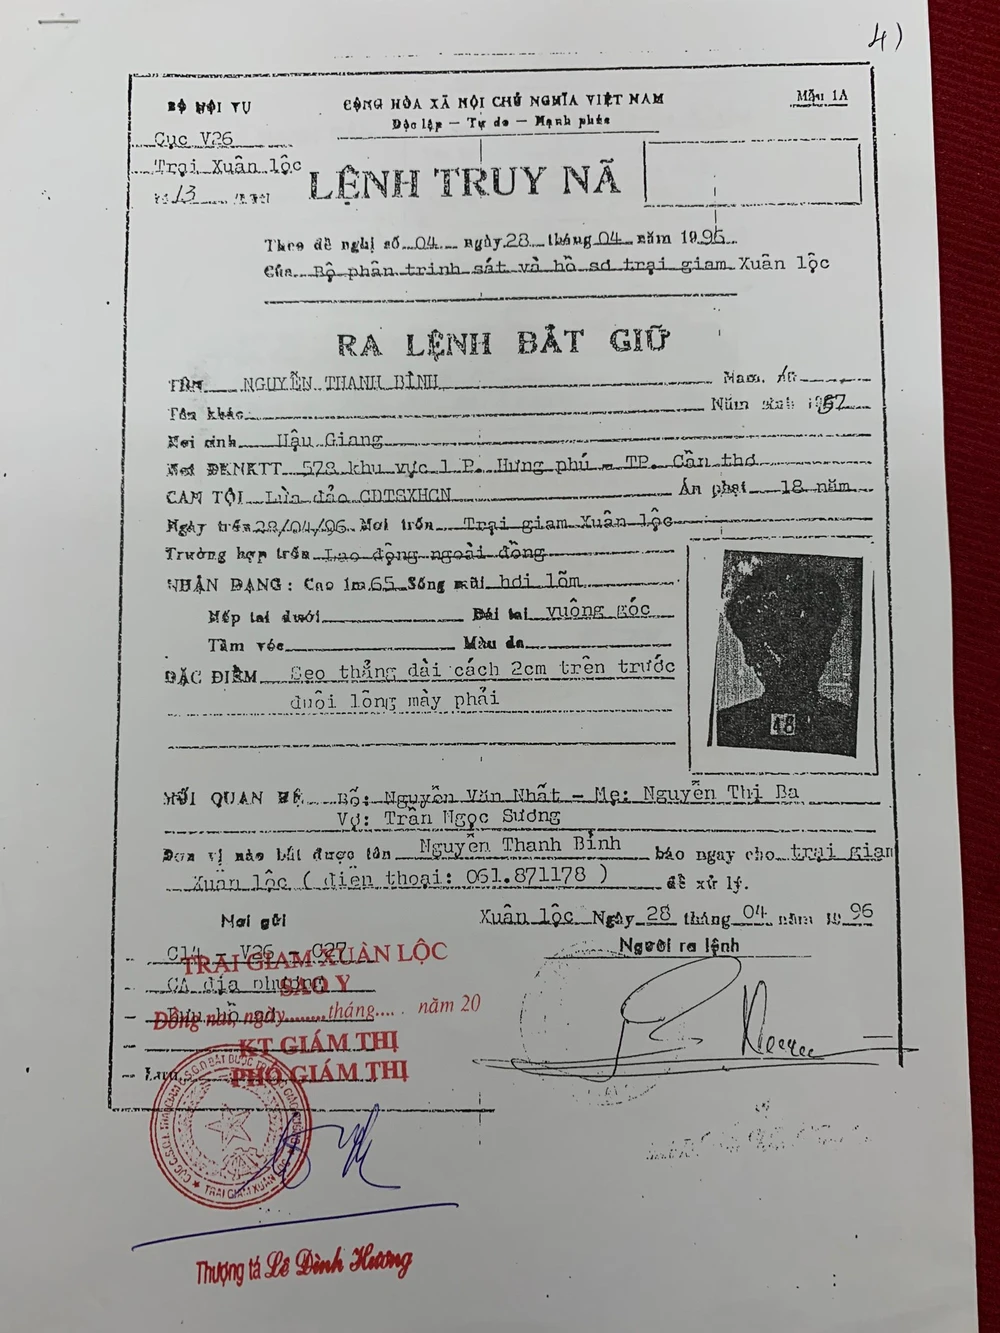 4)
BỘ NỘI VỤ
CỘNG HÒA XÃ HỘI CHỦ NGHĨA VIỆT NAM
Mẫu 1A
Cục V26
Độc lập — Tự do — Hạnh phúc
Trại Xuân lộc
LỆNH TRUY NÃ
Số 13
Theo đề nghị số 04 ngày 28 tháng 04 năm 1996
Của Bộ phận trinh sát và hồ sơ trại giam Xuân lộc
RA LỆNH BẮT GIỮ
TÊN NGUYỄN THANH BÌNH Nam,
Tên khác Năm sinh 1957
Nơi sinh Hậu Giang
Nơi ĐKNKTT 578 khu vực 1 P. Hưng phú - TP. Cần thơ
CAN TỘI Lừa đảo CDTSXHCN Án phạt 18 năm
Ngày trốn 28/04/96 Nơi trốn Trại giam Xuân lộc
Trường hợp trốn Lao động ngoài đồng
NHẬN DẠNG: Cao 1m 65 Sống mũi hơi lõm
Nếp tai dưới Dái tai vuông góc
Tầm vóc Màu da
ĐẶC ĐIỂM Sẹo thẳng dài cách 2cm trên trước
đuôi lông mày phải
48
MỐI QUAN HỆ Bố: Nguyễn Văn Nhất - Mẹ: Nguyễn Thị Ba
Vợ: Trần Ngọc Sương
Đơn vị nào bắt được tên Nguyễn Thanh Bình báo ngay cho trại giam
Xuân lộc ( điện thoại: 061.871178 ) để xử lý.
Nơi gửi
Xuân lộc Ngày 28 tháng 04 năm 1996
Người ra lệnh
- C14 - V26 - C27
TRẠI GIAM XUÂN LỘC
- CA địa phương
SAO Y
- Lưu hồ sơ
Đồng nai, ngày........tháng.... năm 20
KT GIÁM THỊ
- Lưu
PHÓ GIÁM THỊ
TRẠI GIAM XUÂN LỘC
Thượng tá Lê Đình Hương